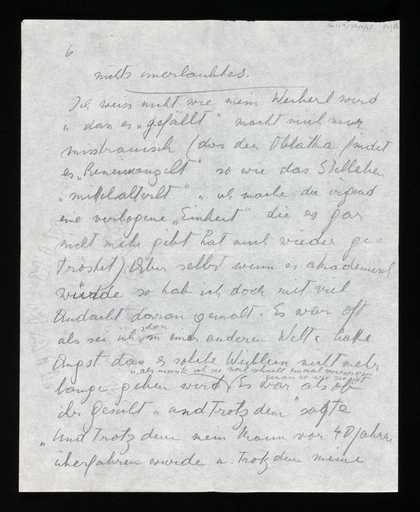 6
nichts unerlaubtes.
Ich weiss nicht wie mein Weiberl wird
"dass es "gefällt" macht mich nur
misstrauisch (dass der findet
es so wie das Stilleben
"mittelalterlt" u. ich mache die irgend
eine verlogene "Einheit" die es gar
nicht mehr gibt hat mich wieder ge-
tröstet). Aber selbst wenn es akademisch
würde so hab ich doch mit viel
Andacht daran gemalt. Es war oft
als sei ich schon in einer anderen Welt u. hatte
Angst dass es solche Weiblein nicht mehr
lange geben wird. Es war als ob
ihr Gesicht "und Trotzdem" sagte
"und Trotzdem mein Mann vor 40 Jahren
überfahren wurde u. trotzdem meine